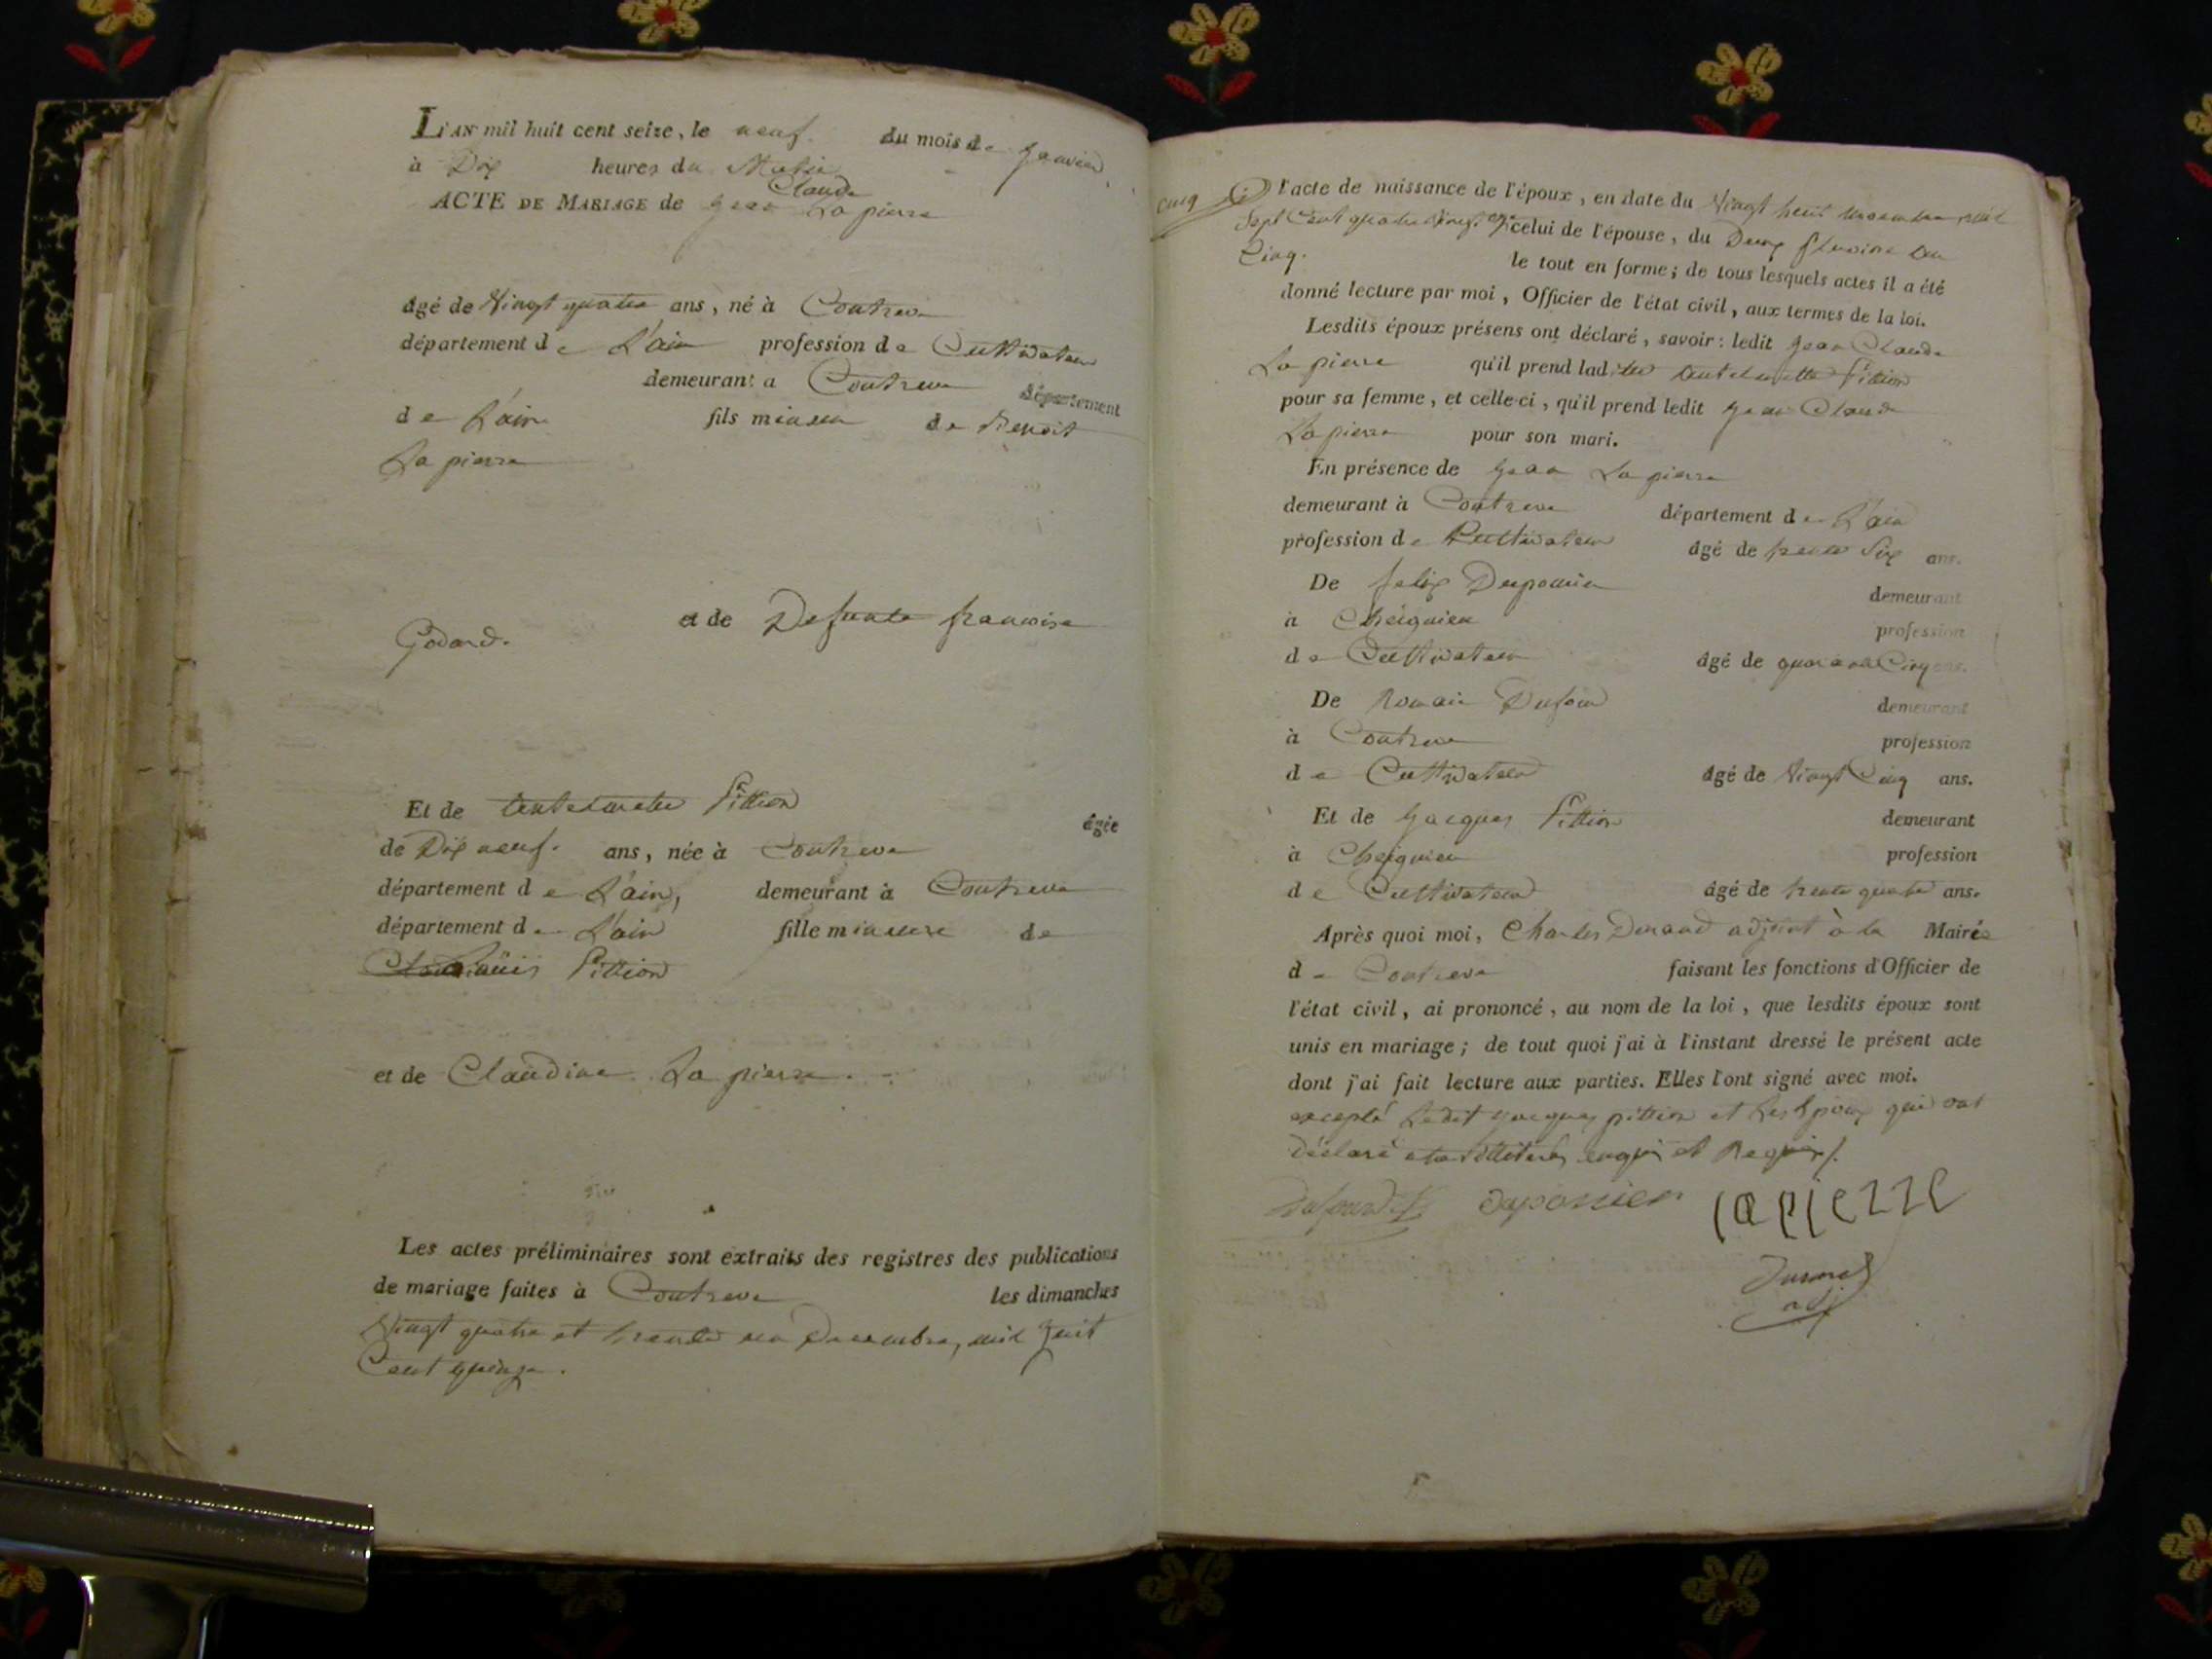 L'AN mil huit cent seize, le neuf du mois de Janvier
à Dix heures du Matin
Claude
ACTE DE MARIAGE de Jean La pierre
âgé de Vingt quatre ans, né à Contrevo
département de L'ain profession de Cultivateur
demeurant a Contrevo département
de L'ain fils mineur de Benoit
La pierre
et de Defunte francoise
Godard.
Et de anthelmette Pittion âgée
de Dix neuf. ans, née à Contrevo
département de L'ain, demeurant à Contrevo
département de L'ain fille mineure de
Loüis Pittion
et de Claudine La pierre
Les actes préliminaires sont extraits des registres des publications
de mariage faites à Contrevo les dimanches
Vingt quatre et trente un Decembre, mil huit
Cent quinze.
cinq l'acte de naissance de l'époux, en date du Vingt huit mil
Sept Cent quatre Vingt celui de l'épouse, du Deux an
Cinq. le tout en forme; de tous lesquels actes il a été
donné lecture par moi, Officier de l'état civil, aux termes de la loi.
Lesdits époux présens ont déclaré, savoir: ledit Jean Claude
La pierre qu'il prend lad. anthelmette Pittion
pour sa femme, et celle-ci, qu'il prend ledit Jean Claude
La pierre pour son mari.
En présence de Jean La pierre
demeurant à Contrevo département de L'ain
profession de Cultivateur âgé de trente Six ans.
De felix demeurant
à Cheignieu profession
de Cultivateur âgé de quarante Cinq ans.
De Romain Dufour demeurant
à Contrevo profession
de Cultivateur âgé de Vingt Cinq ans.
Et de Jacques Pittion demeurant
à Cheignieu profession
de Cultivateur âgé de trente quatre ans.
Après quoi moi, Charles Durand adjoint à la Mairie
de Contrevo faisant les fonctions d'Officier de
l'état civil, ai prononcé, au nom de la loi, que lesdits époux sont
unis en mariage; de tout quoi j'ai à l'instant dressé le présent acte
dont j'ai fait lecture aux parties. Elles l'ont signé avec moi.
excepté Ledit Jacques pittion et Les Epoux qui ont
Déclaré enquis et Requis.
Dufour lapierre
Durand
adj